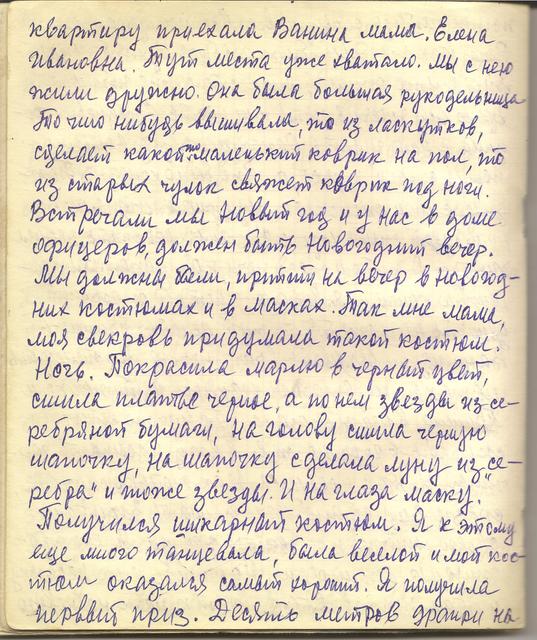 квартиру приехала Ванина мама. Елена
Ивановна. Тут места уже хватало. Мы с нею
жили дружно. Она была большая рукодельница
То что нибудь вышивала, то из ласкутков,
сделает какой то маленький коврик на пол, то
из старых чулок свяжет коврик под ноги.
Встречали мы Новый год и у нас в доме
офицеров, должен быть Новогодний вечер.
Мы должны были, притти на вечер в новогод-
них костюмах и в масках. Так мне мама,
моя свекровь придумала такой костюм.
Ночь. Покрасила марлю в черный цвет,
сшила платье черное, а по нем звезды из се-
ребряной бумаги, на голову сшила черную
шапочку, на шапочку сделала луну из "се-
ребра" и тоже звезды. И на глаза маску.
Получился шикарный костюм. Я к этому
еще много танцевала, была веселой и мой кос-
тюм оказался самый хороший. Я получила
первый приз. Десять метров драпи на